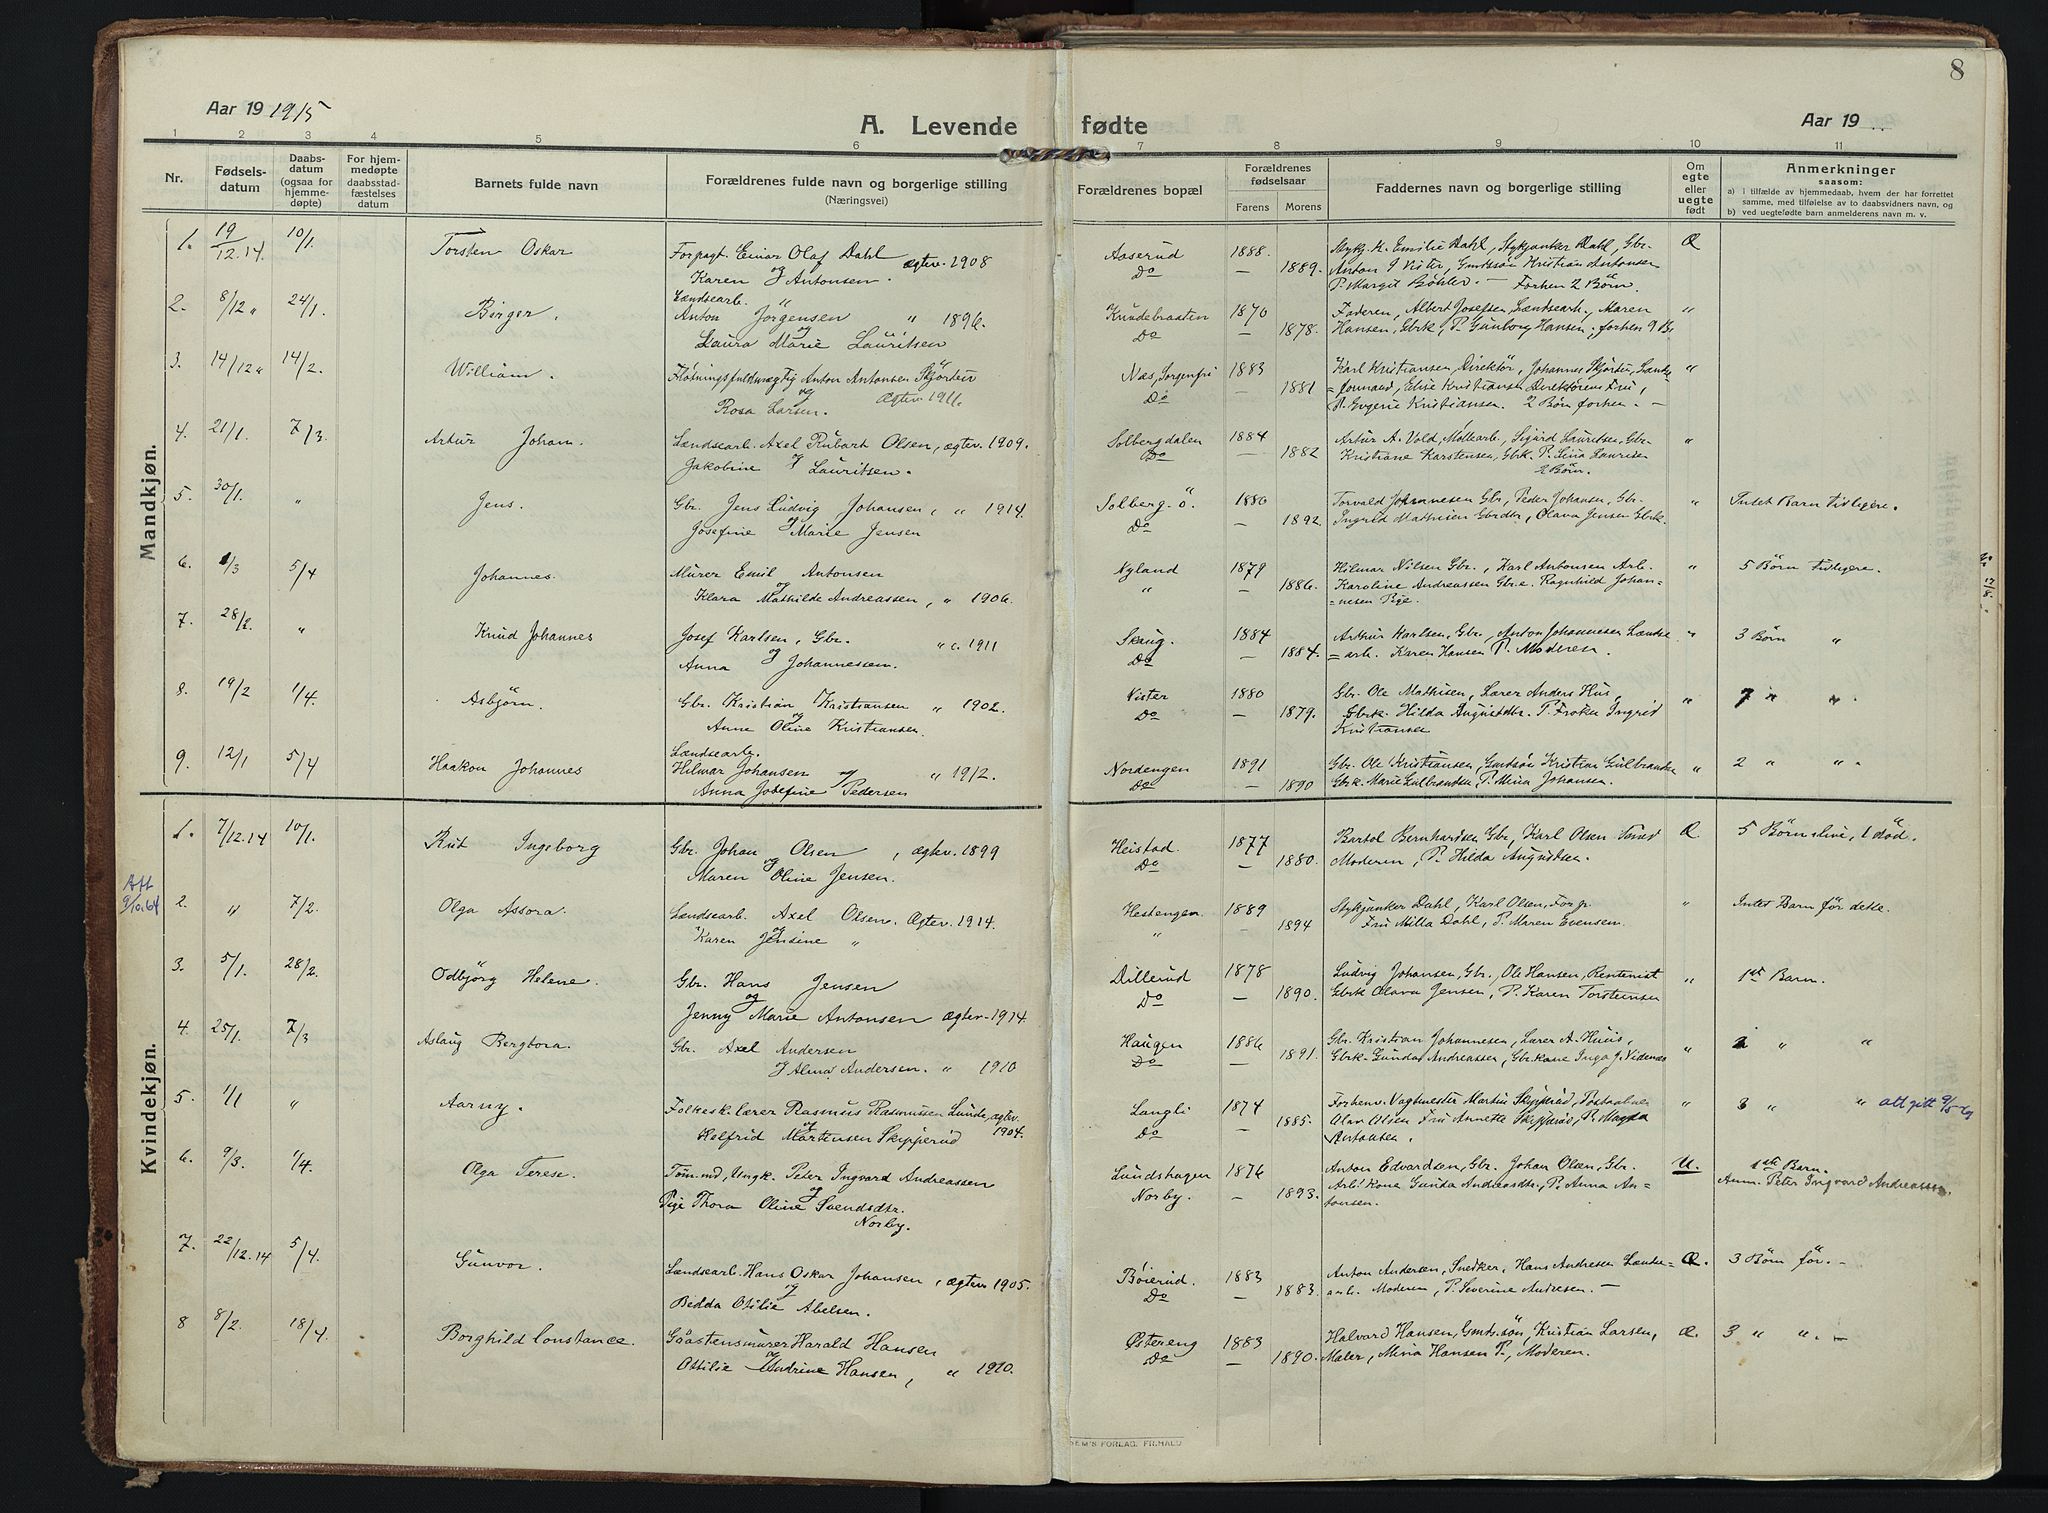 8
Aar 19 1915
A. Levende fødte
Aar 19
1 2 3 4 5 6 7 8 9 10 11
Nr.
Fødsels-
datum
Daabs-
datum
(ogsaa for
hjemme-
døpte)
For hjem-
medøpte
daabsstad-
fæstelses
datum
Barnets fulde navn
Forældrenes fulde navn og borgerlige stilling
(Næringsvei)
Forældrenes bopæl
Forældrenes
fødselsaar
Farens Morens
Faddernes navn og borgerlige stilling
Om
egte
eller
uegte
født
Anmerkninger
saasom:
a) i tilfælde av hjemmedaab, hvem der har forrettet
samme, med tilføielse av to daabsvidners navn, og
b) ved uegtefødte barn anmelderens navn m. v.
Mandkjøn.
1. 19/12.14 10/1. Torsten Oskar
Forpagt. Einar Olaf Dahl ægtev. 1908
og
Karen Antonsen.
Aaserud 1888
Do — 1889.
Emilie Dahl, Stykjunker Dahl, Gbr.
Anton J Vister, Gmdssøn Kristian Antonsen
P. Margit Bøhler. — Forhen 2 Børn.
Æ
2. 8/12 " 24/1. Birger.
Lændsearb. "
Anton Jorgensen " 1896.
og
Laura Marie Lauritsen
Knudebraaten 1870
Do — 1878.
Faderen, Albert Josefsen Lændsearb., Maren
Hansen, Gbrk, P. Gunborg Hansen, forhen 9 B.
"
3. 14/12 " 14/2. William.
Fløtningsfuldmægtig Anton Antonsen Skjörter
og Ægtev. 1911.
Rosa Larsen.
Næs, Sorgenfri 1883
Do — 1881
Karl Kristiansen, Direktör, Johannes Skjörter, Lændse-
=formand, Elise Kristiansen Direktörens Fru,
P. Evgenie Kristiansen. 2 Börn forhen. —
"
4. 21/1. 7/3 Artur Joham.
Lændsearb. Axel Rubart Olsen, ægtev. 1909.
og
Jakobine Lauritsen.
Solbergdalen 1884
Do — 1882
Artur A. Vold, Möllearb., Sigurd Lauritsen, Gbr.
Kristiane Karstensen, Gbrk. P. Lina Lauritsen
2 Börn.
"
5. 30/1. " Jens.
Gbr. Jens Ludvig Johansen, " 1914.
og
Josefine Marie Jensen
Solberg. ö. 1880
Do — 1892.
Torvald Johannesen Gbr, Peder Johansen, Gbr.
Ingrid Mathisen Gbrdtr., Olava Jensen Gbrk.
" Intet Barn tidligere.
6. 1/3 5/4 Johannes.
Murer Emil Antonsen
og
Klara Mathilde Andreassen, " 1906.
Nyland 1879
" — 1886.
Hilmar Nilsen Gbr., Karl Antonsen Arb.
Karoline Andreassen Gbr.e. Ragnhild Johan-
=nesen Pige.
" 5 Börn tidligere.
7. 28/2. " Knud Johannes
Josef Karlsen, Gbr. " 1911
og
Anna Johannessen.
Skaug. 1884
Do — 1884.
Arthur Karlsen, Gbr., Anton Johannesen Lændse
=arb. Karen Hansen P. Moderen.
" 3 Börn "
8. 19/2 1/4. Asbjörn.
Gbr. Kristian Kristiansen " 1902.
og
Anne Oline Kristiansen.
Vister 1880
Do — 1879.
Gbr. Ole Mathisen, Lærer Anders Hus,
Gbrk. Hilda Augustdtr. P. Frøken Ingrid
Kristiansen
" 7 " ".
9. 12/1 5/4 Haakon Johannes
Lændsearb.
Hilmar Johansen og " 1912.
Anna Josefine Pedersen
Nordengen 1891
Do — 1890
Gbr. Ole Kristiansen, Gmdsön Kristian Gulbrandsen
Gbrk. Marie Gulbrandsen, P. Mina Johansen.
" 2 " ".
Kvindekjøn.
1. 7/12.14 10/1. Rut Ingeborg
Gbr. Johan Olsen, ægtev. 1899
og
Maren Oline Jensen.
Heistad. 1877
Do — 1880.
Bartol Bernhardsen Gbr, Karl Olsen
Moderen, P. Hilda Augustsen.
Æ 5 Börn slive, 1 död.
Att
9/10.64
2. " 7/2. Olga Assora.
Lændsearb. Axel Olsen. Ægtev. 1914.
og
Karen Jensine "
Hestengen. 1889
" — 1894
Stykjunker Dahl, Karl Olsen, Forp.
Fru Milla Dahl, P. Maren Evensen.
" Intet Barn för dette.
3. 5/1. 28/2. Odbjörg Helene.
Gbr. Hans Jensen
og
Jenny Marie Antonsen ægtev. 1914.
Dillerud 1878
Do — 1890.
Ludvig Johansen, Gbr., Ole Hansen, Rentenist
Gbrk Olava Jensen, P. Karen Torsteinsen
" 1ste Barn.
4. 25/1. 7/3 Aslaug Bergtora.
Gbr. Axel Andersen
J Alma Andersen. " 1910
Haugen 1886
Do — 1891.
Gbr. Kristian Johannesen, Lærer A. Huus,
Gbrk. Gunda Andreassen, Gbrkone Inga J. Videnæs
" " "
5. 1/1 " Aarny.
Folkesk.lærer Rasmus Rasmussen Lunde, ægtev.
og 1904.
Kolfrid Mortensen Skipperud
Langli 1874
Do — 1885.
Forhenv. Vagtmester Martin Skipperud, Postaabner
Olav Olsen Fru Annette Skipperud, P. Magda
Antonsen.
" 3 " "
6. 9/3. 1/4. Olga Terese.
Töm.md, Ungk. Peter Ingvard Andreassen
og
Pige Thora Oline Svendsdtr.
Norby.
Lundshagen 1876
Norby. — 1893.
Anton Edvardsen, Gbr. Johan Olsen, Gbr.
Arb. Kone Gunda Andreasdtr., P. Anna An-
tonsen.
U. 1ste Barn.
Anm. Peter Ingvard Andreassen.
7. 22/12.14 5/4. Gunvor.
Lændsearb. Hans Oskar Johansen, ægtev 1905.
og
Bedda Otilie Abelsen.
Böierud. 1883
Do — 1883.
Anton Andersen, Snedker, Hans Andresen Lændse=
arb. Moderen, P. Severine Andresen. —
Æ. 3 Börn för. -
8 8/2. 18/4. Borghild Constance.
Harald Hansen
og
Ottilie Andrine Hansen, " 1910.
Østereng 1883
Do — 1890.
Halvard Hansen, Gmdssön, Kristian Larsen,
Maler, Mina Hansen P., Moderen.
Æ. 3 " ". —
FORLAG. FR.HALD